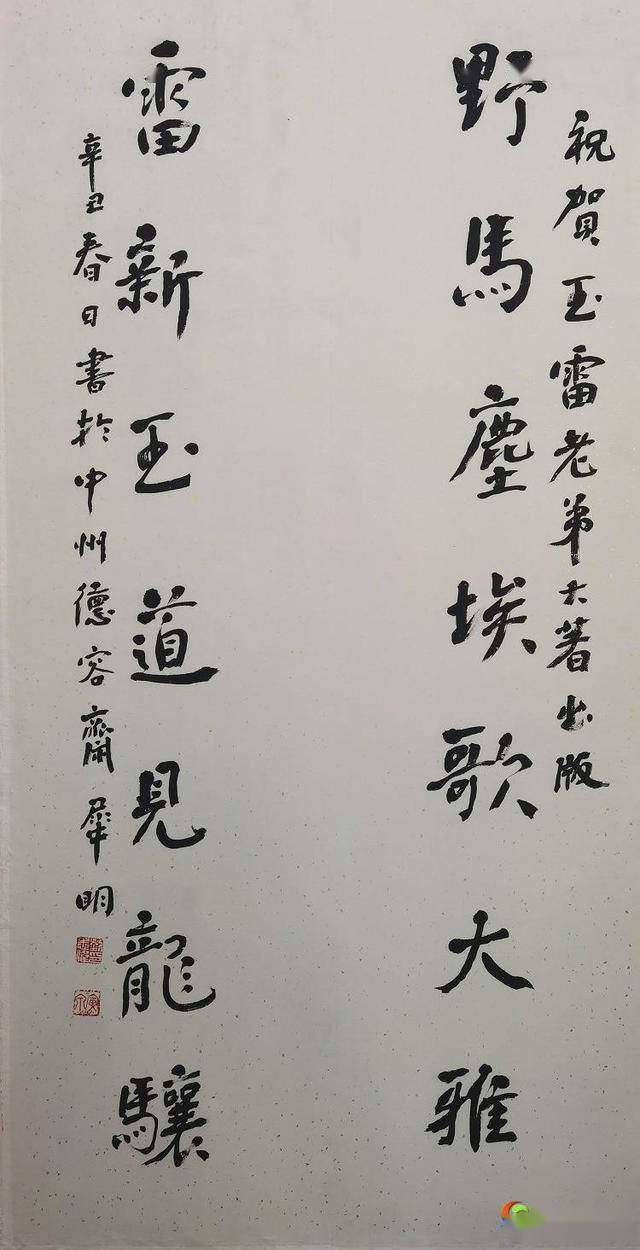 祝賀玉雷老弟大著出版
野馬塵埃歌大雅
雷新玉道見龍驤
辛丑春日書於中州德容齋犀明